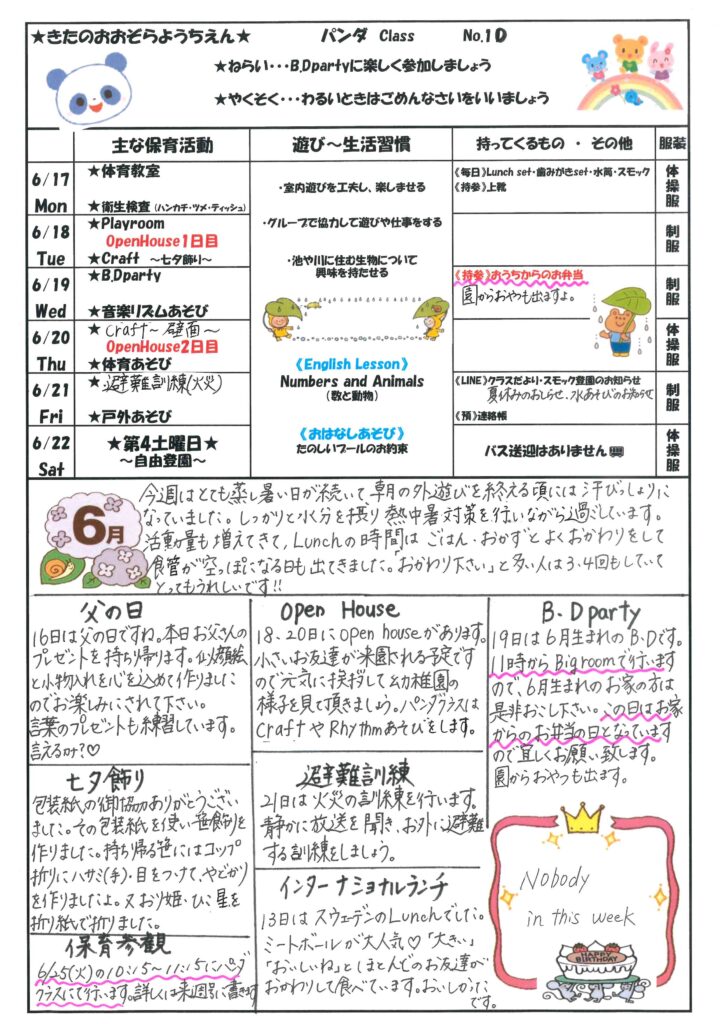 ★きたのおおぞらようちえん★ パンダ Class No.10
★ねらい・・・B,Dpartyに楽しく参加しましょう
★やくそく・・・わるいときはごめんなさいをいいましょう
主な保育活動 遊び～生活習慣 持ってくるもの ・ その他 服装
6/17 Mon
★体育教室
★衛生検査(ハンカチ・ツメ・ティッシュ)
・室内遊びを工夫し、楽しませる
《毎日》Lunch set・歯みがきset・水筒・スモック
《持参》上靴
体操服
6/18 Tue
★Playroom
OpenHouse1日目
★Craft ～七夕飾り～
・グループで協力して遊びや仕事をする
・池や川に住む生物について
興味を持たせる
制服
6/19 Wed
★B,Dparty
★音楽リズムあそび
《持参》おうちからのお弁当
園からおやつも出ますよ。
制服
6/20 Thu
★craft～壁面～
OpenHouse2日目
★体育あそび
《English Lesson》
Numbers and Animals
(数と動物)
体操服
6/21 Fri
★避難訓練(火災)
★戸外あそび
《LINE》クラスだより・スモック登園のお知らせ
夏休みのおしらせ、水あそびのお知らせ
《預》連絡帳
制服
6/22 Sat
★第4土曜日★
～自由登園～
《おはなしあそび》
たのしいプールのお約束
バス送迎はありません
体操服
6月
今週はとても蒸し暑い日が続いて朝の外遊びを終える頃には汗びっしょりに
なっていました。しっかりと水分を摂り熱中症対策を行いながら過ごしています。
活動量も増えてきて、Lunchの時間はごはん・おかずとよくおかわりをして
食管が空っぽになる日も出てきました。「おかわり下さい」と多い人は3.4回もしていて
とってもうれしいです!!
父の日
16日は父の日ですね。本日お父さんの
プレゼントを持ち帰ります。似顔絵
と小物入れを心を込めて作りました
のでお楽しみにされて下さい。
言葉のプレゼントも練習しています。
言えるか?♡
Open House
18、20日にopen houseがあります。
小さいお友達が来園される予定です
ので元気に挨拶して幼稚園の
様子を見て頂きましょう。パンダクラスは
CraftやRhythmあそびをします。
B、Dparty
19日は6月生まれのB、Dです。
11時からBigroomで行います
ので、6月生まれのお家の方は
是非お越し下さい。この日はお家
からのお弁当の日となっています
ので宜しくお願い致します。
園からおやつも出ます。
七夕飾り
包装紙の御協力ありがとうござい
ました。その包装紙を使い笹飾りを
作りました。持ち帰る笹にはコップ
折りにハサミ(手)・目をつけて、やどかり
を作りましたよ。又おり姫・ひこ星を
折り紙で折りました。
避難訓練
21日は火災の訓練を行います。
静かに放送を聞き、お外に避難
する訓練をしましょう。
保育参観
6/25(火)の10:15～11:15にパンダ
クラスにて行います。詳しくは来週号に書きます
インターナショナルランチ
13日はスウェーデンのLunchでした。
ミートボールが大人気♡「大きい」
「おいしいね」とほとんどのお友達が
おかわりして食べています。
です。
Nobody
in this week
HAPPY
BIRTHDAY